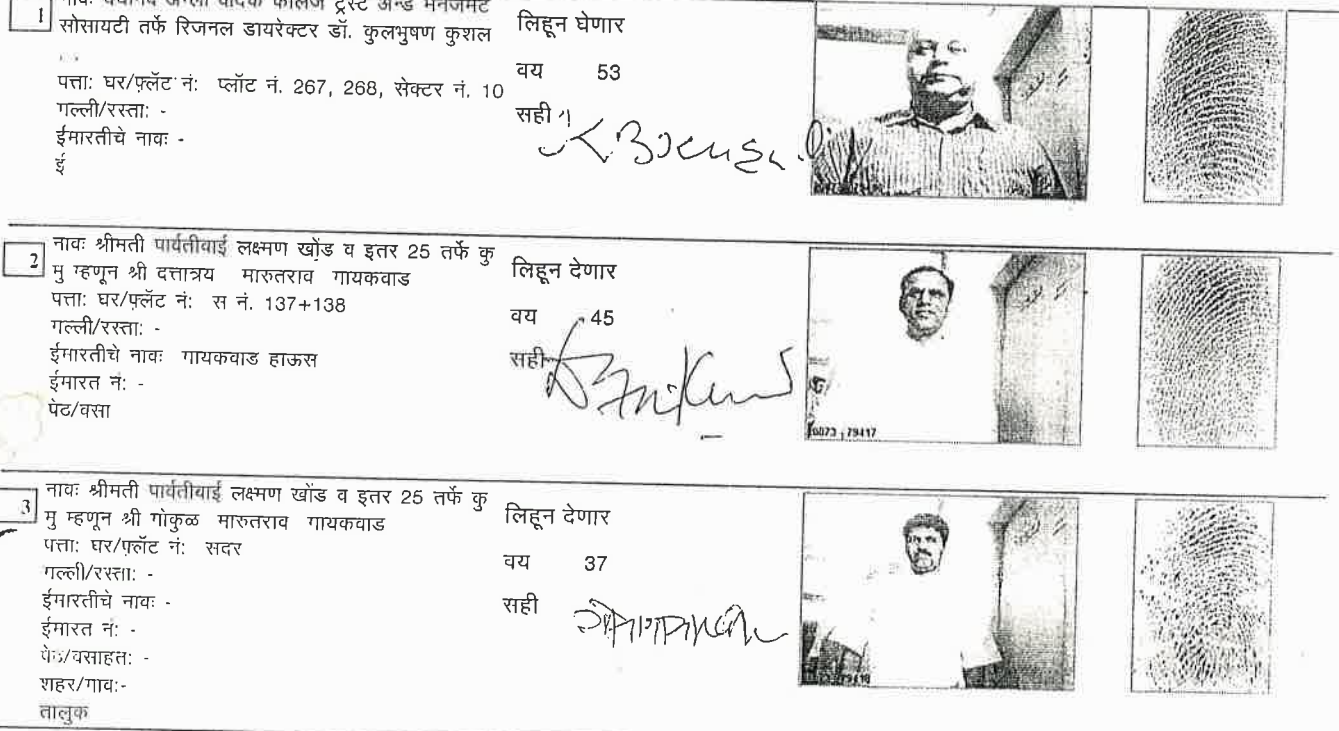 1
नावः दयानंद अँग्लो वैदिक कॉलेज ट्रस्ट अन्ड मॅनेजमेंट
सोसायटी तर्फे रिजनल डायरेक्टर डॉ. कुलभुषण कुशल
पत्ता: घर/फ़्लॅट नं: प्लॉट नं. 267, 268, सेक्टर नं. 10
गल्ली/रस्ता: -
ईमारतीचे नावः -
ई
लिहून घेणार
वय 53
सही
2
नावः श्रीमती पार्वतीबाई लक्ष्मण खोंड व इतर 25 तर्फे कु
मु म्हणून श्री दत्तात्रय मारुतराव गायकवाड
पत्ता: घर/फ़्लॅट नं: स नं. 137+138
गल्ली/रस्ता: -
ईमारतीचे नावः गायकवाड हाऊस
ईमारत नं: -
पेठ/वसा
लिहून देणार
वय 45
सही
0073 79417
3
नावः श्रीमती पार्वतीबाई लक्ष्मण खोंड व इतर 25 तर्फे कु
मु म्हणून श्री गोकुळ मारुतराव गायकवाड
पत्ता: घर/फ़्लॅट नं: सदर
गल्ली/रस्ता: -
ईमारतीचे नावः -
ईमारत नं: -
पेठ/वसाहत: -
शहर/गाव:-
तालुक
लिहून देणार
वय 37
सही